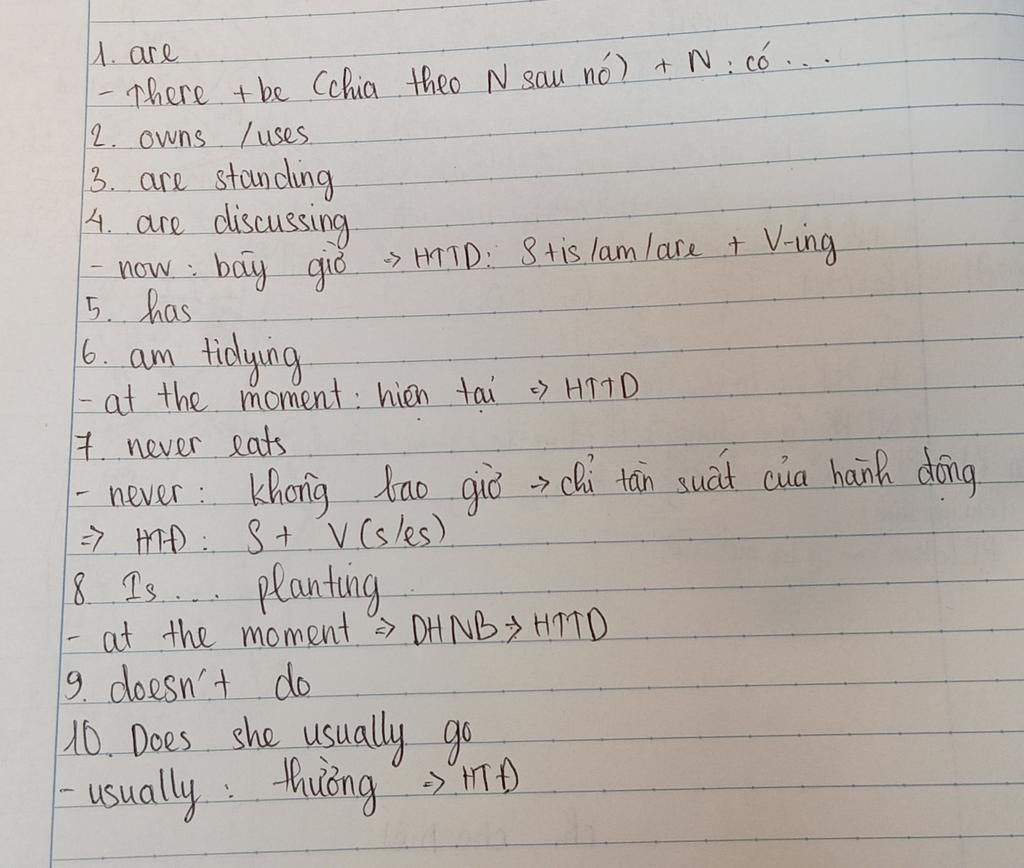 1. are
- There + be (chia theo N sau nó) + N : có ...
2. owns /uses
3. are standing
4. are discussing
- now : bây giờ => HTTD: S+is/am/are + V-ing
5. has
6. am tidying
- at the moment : hiện tại => HTTD
7. never eats
- never : không bao giờ -> chỉ tần suất của hành động
=> HTĐ : S + V(s/es)
8 Is ... planting
- at the moment => DHNB => HTTD
9. doesn't do
10. Does she usually go
- usually : thường => HTĐ